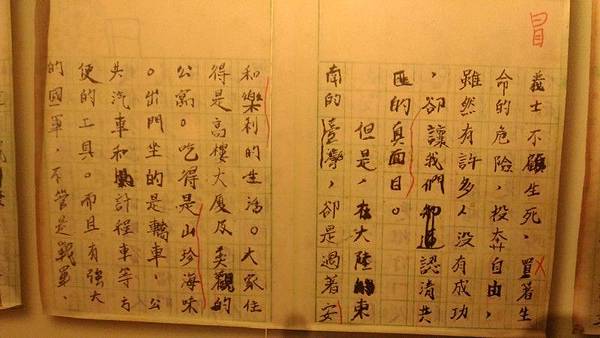 冒
義士不顧生死,置著生
命的危險,投奔自由,
雖然有許多人沒有成功
,卻讓我們認清共
匪的真面目。
但是,在大陸東
南的臺灣,卻是過著安
和樂利的生活。大家住
得是高樓大廈及美觀的
公寓。吃得是山珍海味
。出門坐的是轎車,公
共汽車和計程車等方
便的工具。而且有強大
的國軍,不管是戰軍、